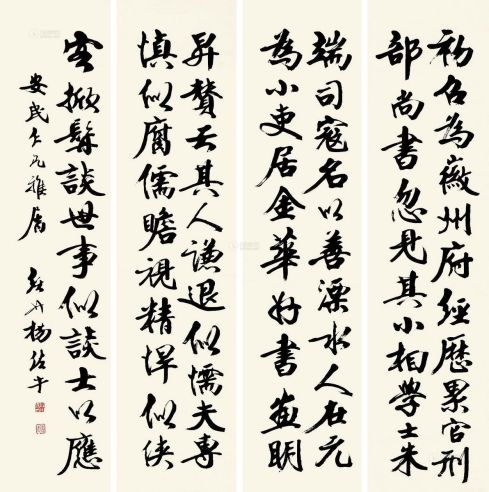 初名為徽州府經歷累官刑
部尚書忽見其小相學士朱
端司寇名以善溧水人在元
為小吏居金華好書畫明
昇贊云其人謙退似懦夫專
慎似腐儒瞻視精悍似俠
客掀髯談世事似談士以應
安民仁兄雅屬